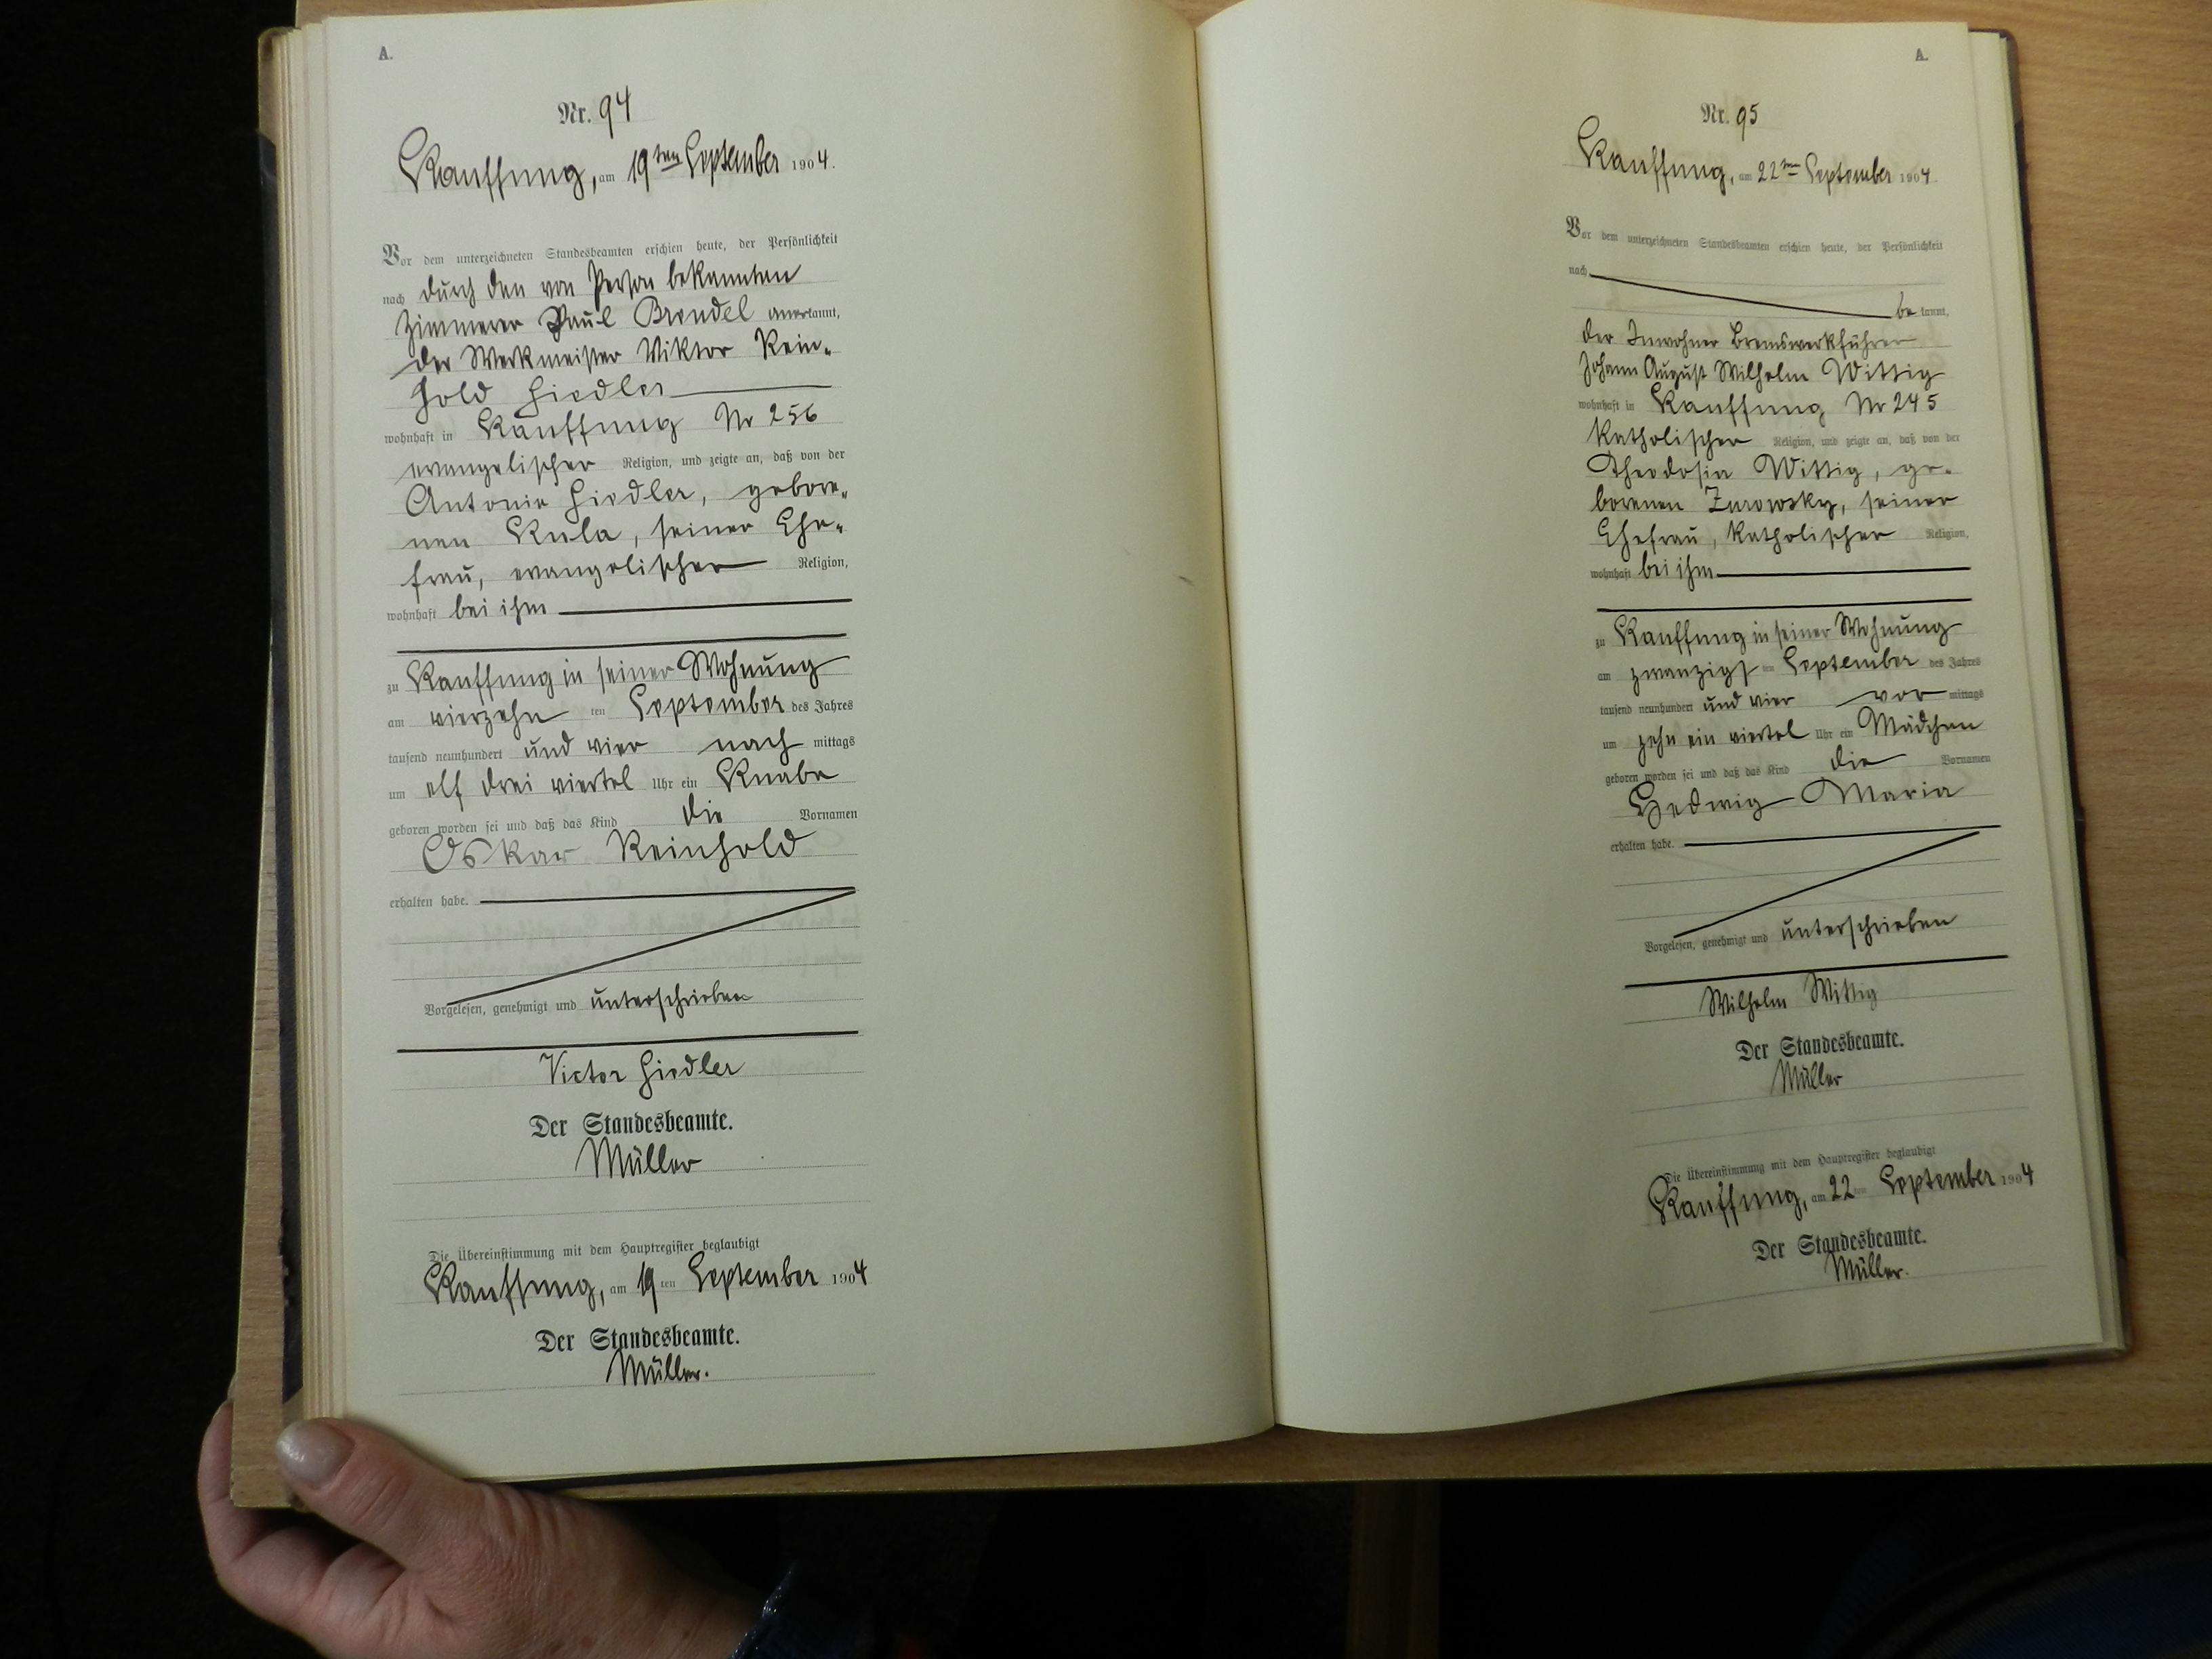 A.
Nr. 94
Kauffung, am 19ten September 1904.
Vor dem unterzeichneten Standesbeamten erschien heute, der Persönlichkeit
nach durch den von Person bekannten
Zimmerer Paul Brendel anerkannt,
der Werkmeister Viktor Rein-
hold Fiedler
wohnhaft in Kauffung Nr 256
evangelischer Religion, und zeigte an, daß von der
Antonie Fiedler, gebore-
nen Kula, seiner Ehe-
frau, evangelischer Religion,
wohnhaft bei ihm
zu Kauffung in seiner Wohnung
am vierzehn ten September des Jahres
tausend neunhundert und vier nach mittags
um elf drei viertel Uhr ein Knabe
geboren worden sei und daß das Kind die Vornamen
Oskar Reinhold
erhalten habe.
Vorgelesen, genehmigt und unterschrieben
Victor Fiedler
Der Standesbeamte.
Müller
Die Übereinstimmung mit dem Hauptregister beglaubigt
Kauffung, am 19 ten September 1904
Der Standesbeamte.
Müller.
A.
Nr. 95
Kauffung, am 22ten September 1904.
Vor dem unterzeichneten Standesbeamten erschien heute, der Persönlichkeit
nach
be kannt,
der Inwohner Bremswerkführer
Johann August Wilhelm Wittig
wohnhaft in Kauffung Nr 245
katholischer Religion, und zeigte an, daß von der
Theodosia Wittig, ge-
borenen Zurowsky, seiner
Ehefrau, katholischer Religion,
wohnhaft bei ihm
zu Kauffung in seiner Wohnung
am zwanzigs ten September des Jahres
tausend neunhundert und vier vor mittags
um zehn ein viertel Uhr ein Mädchen
geboren worden sei und daß das Kind die Vornamen
Hedwig Maria
erhalten habe.
Vorgelesen, genehmigt und unterschrieben
Wilhelm Wittig
Der Standesbeamte.
Müller
Die Übereinstimmung mit dem Hauptregister beglaubigt
Kauffung, am 22 ten September 1904
Der Standesbeamte.
Müller.